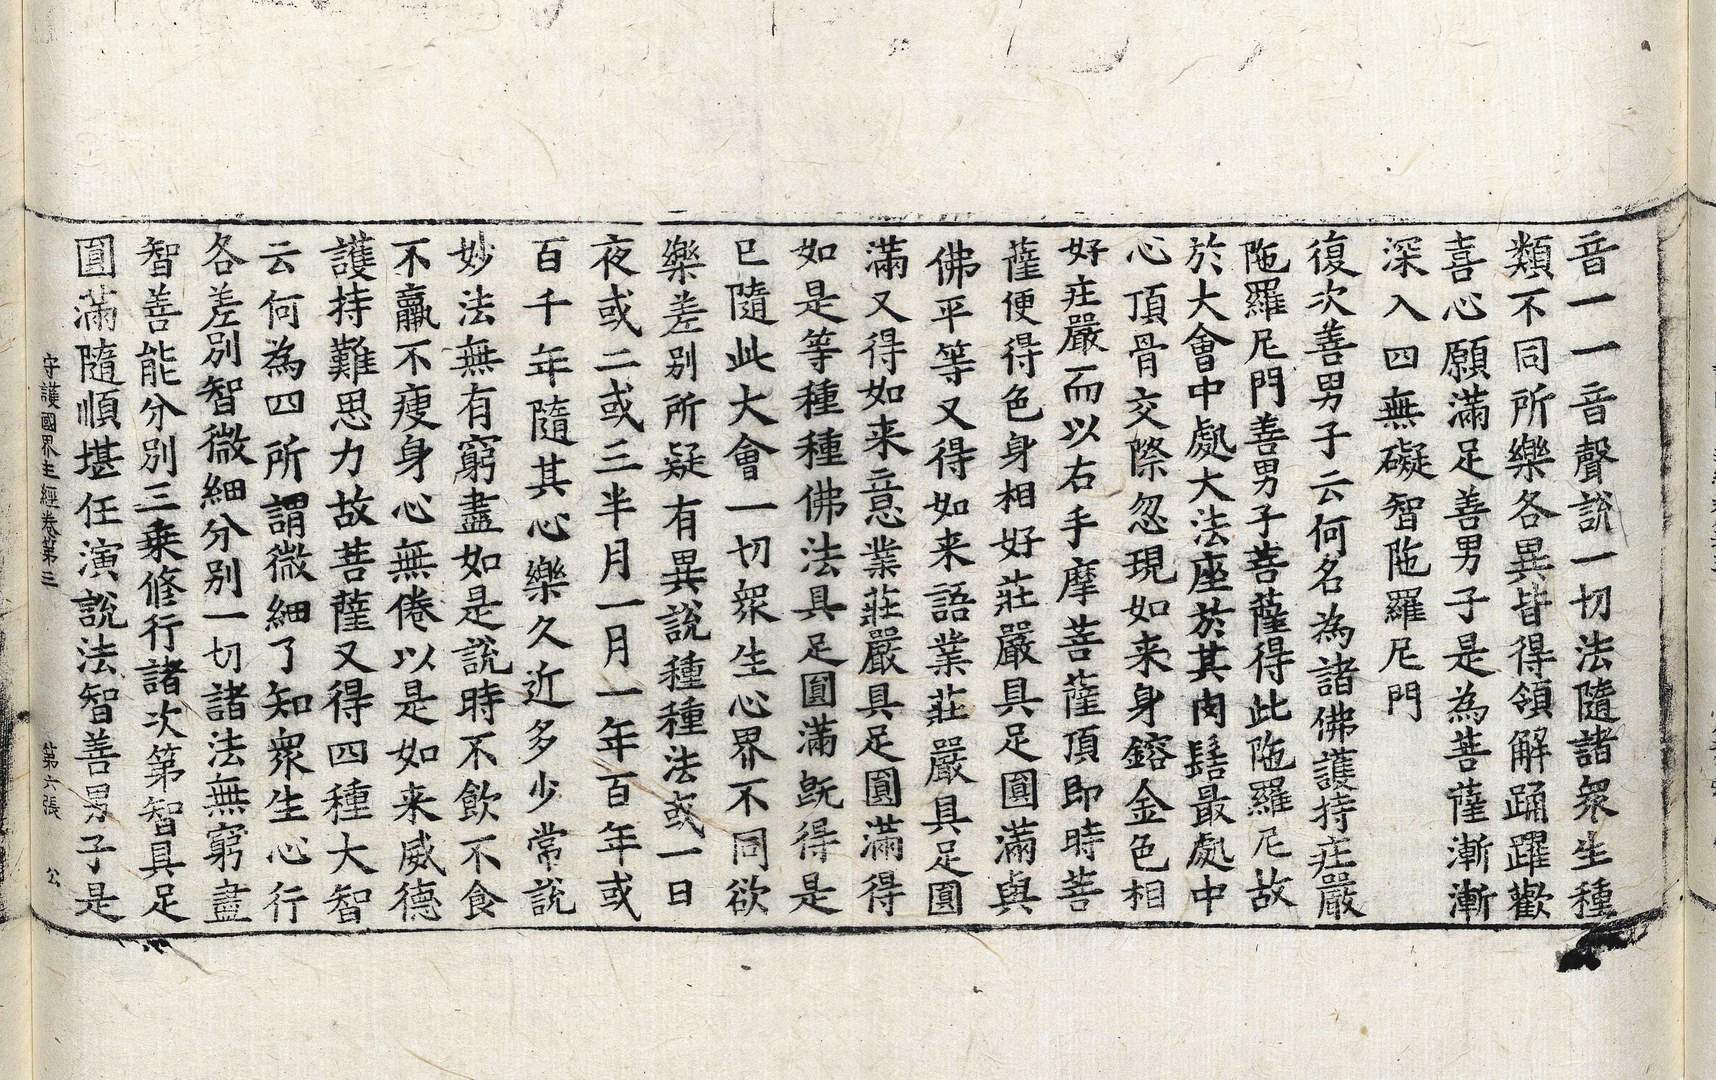 音一一音聲說一切法隨諸衆生種
類不同所樂各異皆得領解踊躍歡
喜心願滿足善男子是為菩薩漸漸
深入四無礙智陁羅尼門
復次善男子云何名為諸佛護持莊嚴
陁羅尼門善男子菩薩得此陁羅尼故
於大會中處大法座於其肉髻最處中
心頂骨交際忽現如来身鎔金色相
好莊嚴而以右手摩菩薩頂即時菩
薩便得色身相好莊嚴具足圓滿與
佛平等又得如来語業莊嚴具足圓
滿又得如来意業莊嚴具足圓滿得
如是等種種佛法具足圓滿旣得是
已隨此大會一切衆生心界不同欲
樂差別所疑有異說種種法或一日
夜或二或三半月一月一年百年或
百千年隨其心樂久近多少常說
妙法無有窮盡如是說時不飲不食
不羸不瘦身心無倦以是如来威德
護持難思力故菩薩又得四種大智
云何為四所謂微細了知衆生心行
各差別智微細分別一切諸法無窮盡
智善能分別三乗修行諸次第智具足
圓滿隨順堪任演說法智善男子是
守護國界主經卷第三 第六張 公